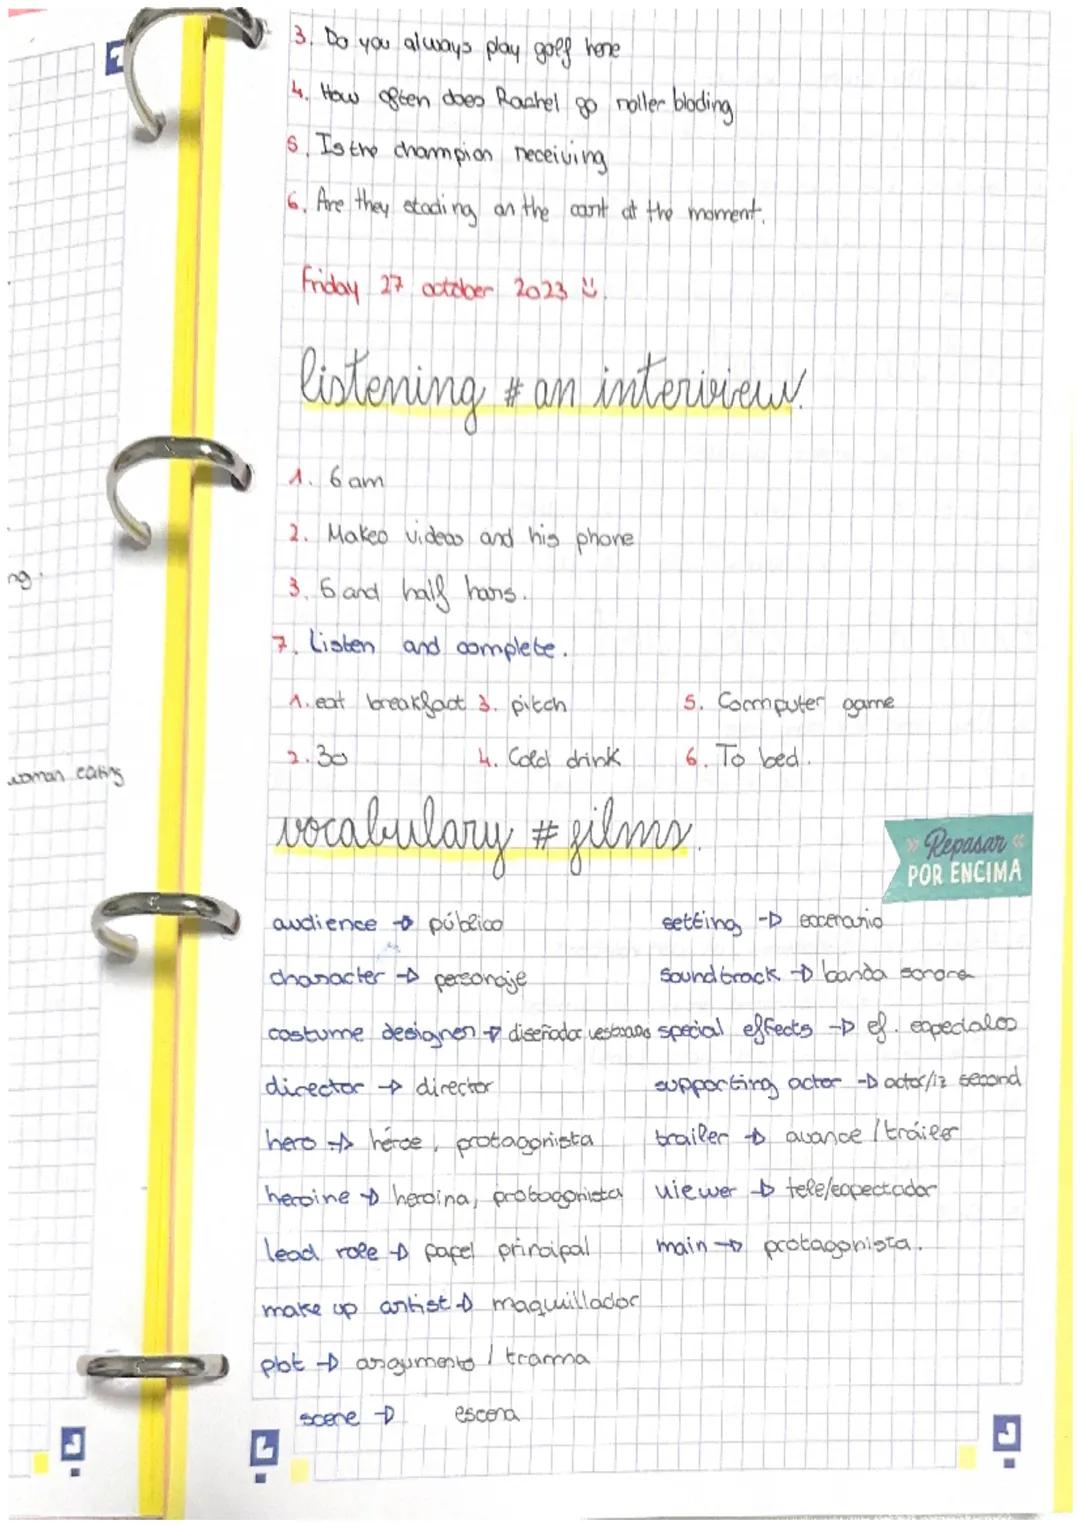 3. Do you always play golf here
4. How often does Rachel go roller blading
5. Is the champion receiving
6. Are they stading on the cart at the moment.
Friday 27 october 2023
listening # an interview.
1. 6 am
2. Makes videos and his phone
3. 6 and half hors.
7. listen and complete.
1. eat breakfast 3. pitch 5. Computer game
2. 30 4. Cold drink 6. To bed.
vocabulary # films.
Repasar
POR ENCIMA
audience → público setting → escenario
character → personaje soundtrack → banda sonora
costume designer → diseñador special effects → ef. especiales
director → director supporting actor → actor/iz second
hero → héroe, protagonista trailer → avance / tráiler
heroine → heroína, protagonista viewer → tele/espectador
lead role → papel principal main → protagonista.
make up artist → maquillador
plot → argumento / trama
scene → escena
ng.
woman eating